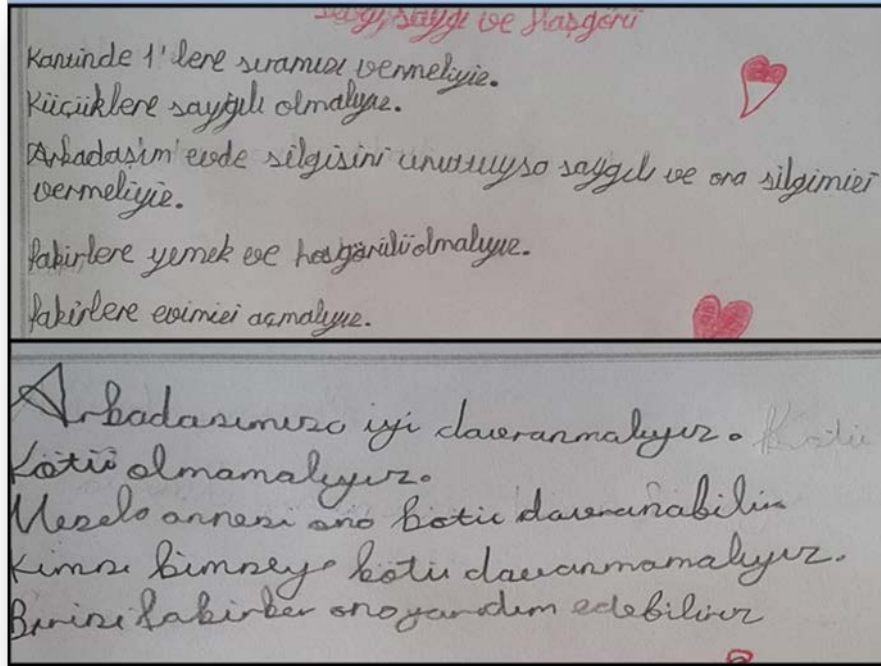 Sevgi, saygı ve Hoşgörü
Kantinde 1'lere sıramızı vermeliyiz.
Küçüklere saygılı olmalıyız.
Arkadaşım evde silgisini unutuyso saygılı ve ona silgimizi
vermeliyiz.
fakirlere yemek ve hoşgörülü olmalıyız.
fakirlere evimizi açmalıyız.
Arkadasımıza iyi davranmalıyız. Kötü
Kötü olmamalıyız.
Mesela annesi ona kötü davranabilir
Kimse kimseye kötü davanmamalıyız.
Birisi fakirker ona yardım edebiliriz